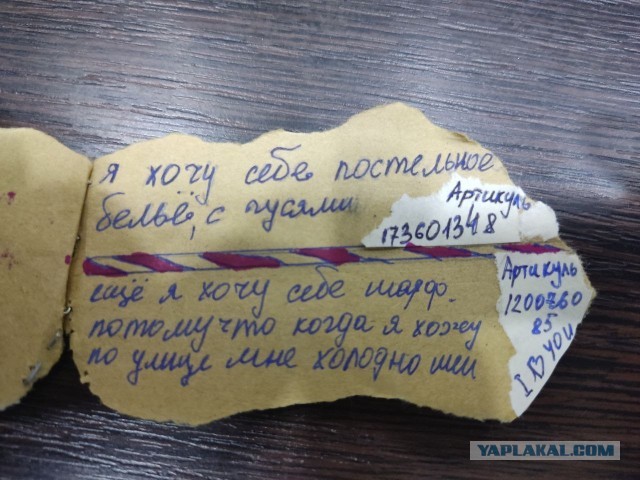 я хочу себе постельное
бельё, с гусями
Артикуль
173601348
ещё я хочу себе шарф.
потому что когда я хожу
по улице мне холодно шеи
Артикуль
1200760
85
YAPLAKAL.COM